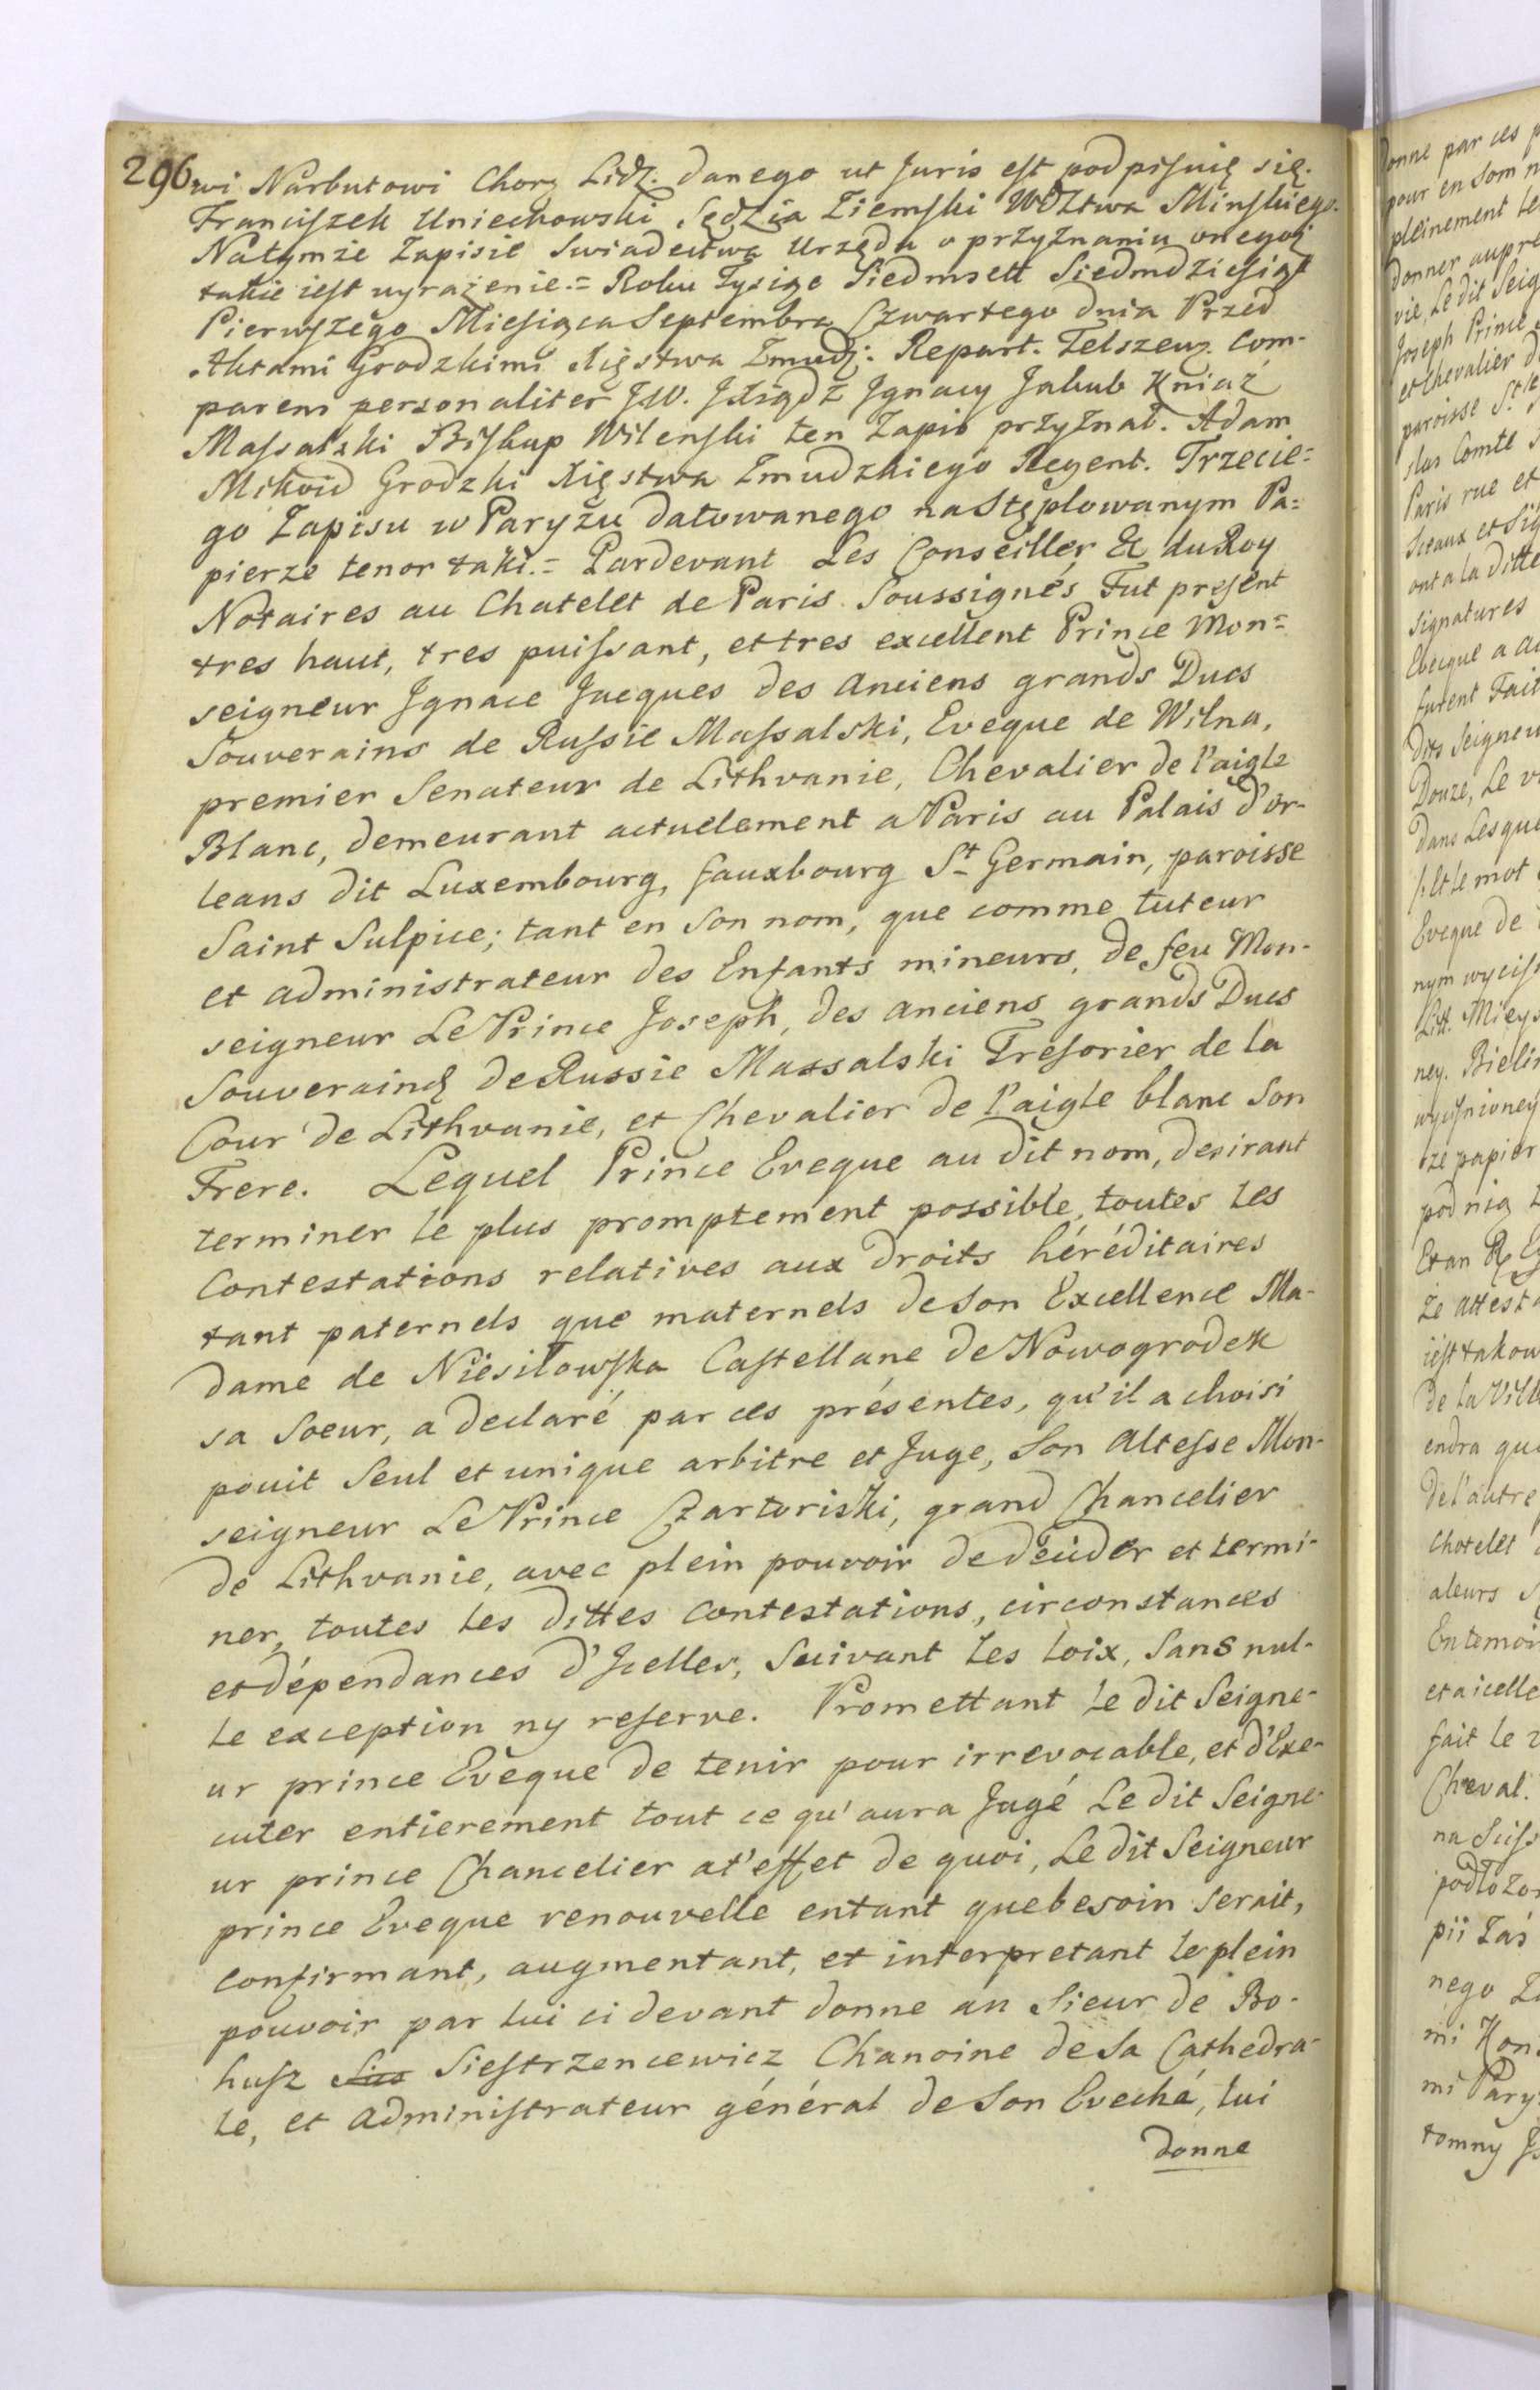 296 wi Narbutowi Chorz Lidz: danego ut Juris est podpisuię się.
Franciszek Uniechowski Sędzia Ziemski Wdztwa Minskiego.
Natymże Zapisie Swiadectwa Urzędu o przyznaniu onegoż
takie iest wyrażenie.= Roku Tysiąc Siedmsett Siedmdziesiąt
Pierwszego Miesiąca Septembra Czwartego dnia Przed
Aktami Grodzkimi Xięstwa Żmudz: Repart. Telszew. Com-
parens personaliter JW. JXiądz Jgnacy Jakub Kniaź
Massalski Biskup Wilenski ten Zapis przyznał. Adam
Mikoid Grodzki Xięstwa Żmudzkiego Regent. Trzecie=
go Zapisu w Paryżu datowanego na Stęplowanym Pa=
pierze tenor taki.= Pardevant Les Conseiller & du Roy
Notaires au Chatelet de Paris Soussignés Fut present
tres haut, tres puissant, et tres excellent Prince Mon=
seigneur Jgnace Jacques des Anciens grands Ducs
Souverains de Russie Massalski, Eveque de Wilna,
premier Senateur de Lithvanie, Chevalier de l'aigle
Blanc, demeurant actuelement a Paris au Palais d'or-
leans dit Luxembourg, fauxbourg St Germain, paroisse
Saint Sulpice; tant en Son nom, que comme tuteur
et administrateur des Enfants mineurs, de feu Mon-
seigneur Le Prince Joseph, des anciens grands Ducs
Souverains de Russie Massalski Tresorier de la
Cour de Lithvanie, et Chevalier de l'aigle blanc Son
Frere. Lequel Prince Eveque au dit nom, desirant
terminer le plus promptement possible, toutes les
Contestations relatives aux droits héréditaires
tant paternels que maternels de Son Excellence Ma-
dame de Niesiłowska Castellane de Nowogrodek
sa Soeur, a declaré par ces présentes, qu'il a choisi
pouit Seul et unique arbitre et Juge, Son Altesse Mon-
seigneur Le Prince Czartoriski, grand Chancelier
de Lithvanie, avec plein pouvoir de déuider et termi-
ner, toutes les dittes Contestations, circonstances
et dépendances d'Jcelles, Suivant les loix, Sans nul-
le exception ny reserve. Promettant le dit Seigne-
ur prince Evèque de tenir pour irrevocable, et d'Exe-
cuter entierement tout ce qu'aura Jugé Le dit Seigne-
ur prince Chancelier at'effet de quoi, Le dit Seigneur
prince Eveque renouvelle entant que besoin Serait,
confirmant, augmentant, et interpretant le plein
pouvoir par lui ci devant donne au Sieur de Bo-
husz Siestrzencewicz Chanoine de Sa Cathedra-
le, et administrateur général de Son Eveché, lui
donne
donne par ces
pour en Som
pleinement
donner
vie, Le dit Seig
Joseph Prince
et Chevalier
paroisse St
slas Comte
Paris rue et
Sceaux et Sig
ont a la ditte
Signatures
Evecque a
furent Fait
dits Seigneu
Douze, Le
dans Lesque
Et le mot
Eveque de
nym
Litt. Mieys
ney. Bielin
ze papier
pod nią
Exan
Ze attest
iest takow
de la Vill
endra que
de l'autre
Chatelet
aleurs
En temoin
et a icelle
fait le
Cheval.
na
podłożon
pii Zaś
nego
mi Kon
mi Pary
tomny